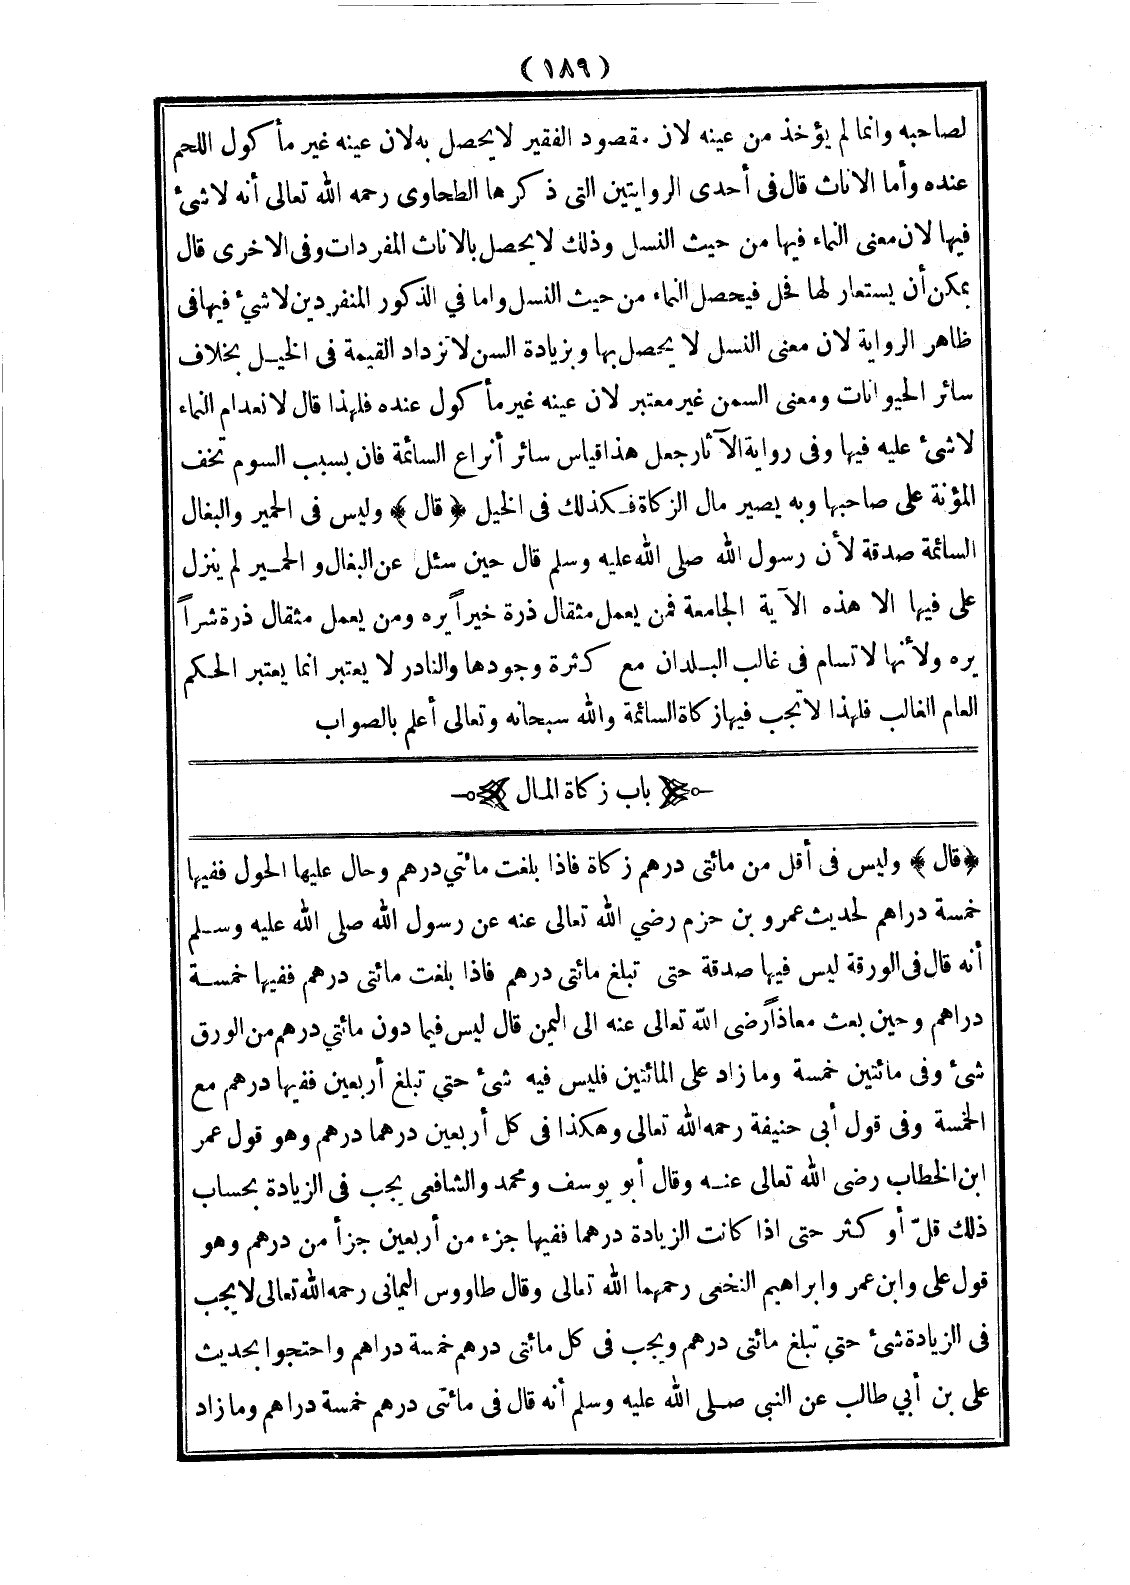 (١٨٩)
لصاحبه وانما لم يؤخذ من عينه لان مقصود الفقير لا يحصل به لان عينه غير مأ كول اللحم
عنده وأما الاناث قال فى أحدى الروايتين التى ذكرها الطحاوى رحمه الله تعالى أنه لا شئ
فيها لان معنى النماء فيها من حيث النسل وذلك لا يحصل بالاناث المفردات وفى الاخرى قال
يمكن أن يستعار لها فحل فيحصل النماء من حيث النسل واما في الذكور المنفردين لا شيء فيها فى
ظاهر الرواية لان معنى النسل لا يحصل بها وبزيادة السن لا تزداد القيمة فى الخيل بخلاف
سائر الحيوانات ومعنى السمن غير معتبر لان عينه غير مأ كول عنده فلهذا قال لانعدام النماء
لا شئ عليه فيها وفى رواية الآثار جعل هذا قياس سائر أنراع السائمة فان بسبب السوم تخف
المؤنة على صاحبها وبه يصير مال الزكاة فكذلك فى الخيل ﴿قال﴾ وليس فى الحمير والبغال
السائمة صدقة لأن رسول الله صلى الله عليه وسلم قال حين سئل عن البغال و الحمير لم ينزل
على فيها الا هذه الآية الجامعة فمن يعمل مثقال ذرة خيراً يره ومن يعمل مثقال ذرة شراً
يره ولأنها لا تسام فى غالب البلدان مع كثرة وجودها والنادر لا يعتبر انما يعتبر الحكم
العام الغالب فلهذا لا تجب فيها زكاة السائمة والله سبحانه وتعالى أعلم بالصواب
باب زكاة المال
﴿قال﴾ وليس فى أقل من مائتى درهم زكاة فاذا بلغت مائتي درهم وحال عليها الحول ففيها
خمسة دراهم لحديث عمرو بن حزم رضي الله تعالى عنه عن رسول الله صلى الله عليه وسلم
أنه قال فى الورقة ليس فيها صدقة حتى تبلغ مائتى درهم فاذا بلغت مائتى درهم ففيها خمسة
دراهم وحين بعث معاذاً رضى الله تعالى عنه الى اليمن قال ليس فيما دون مائتي درهم من الورق
شئ وفى مائتين خمسة وما زاد على المائتين فليس فيه شئ حتي تبلغ أربعين ففيها درهم مع
الخمسة وفى قول أبى حنيفة رحمه الله تعالى وهكذا فى كل أربعين درهما درهم وهو قول عمر
ابن الخطاب رضى الله تعالى عنه وقال أبو يوسف ومحمد والشافعى يجب فى الزيادة بحساب
ذلك قلّ أو كثر حتى اذا كانت الزيادة درهما ففيها جزء من أربعين جزأ من درهم وهو
قول على وابن عمر وابراهيم النخعى رحمهما الله تعالى وقال طاووس اليمانى رحمه الله تعالى لا يجب
فى الزيادة شئ حتي تبلغ مائتى درهم ويجب فى كل مائتى درهم خمسة دراهم واحتجوا بحديث
على بن أبي طالب عن النبى صلى الله عليه وسلم أنه قال فى مائتى درهم خمسة دراهم وما زاد